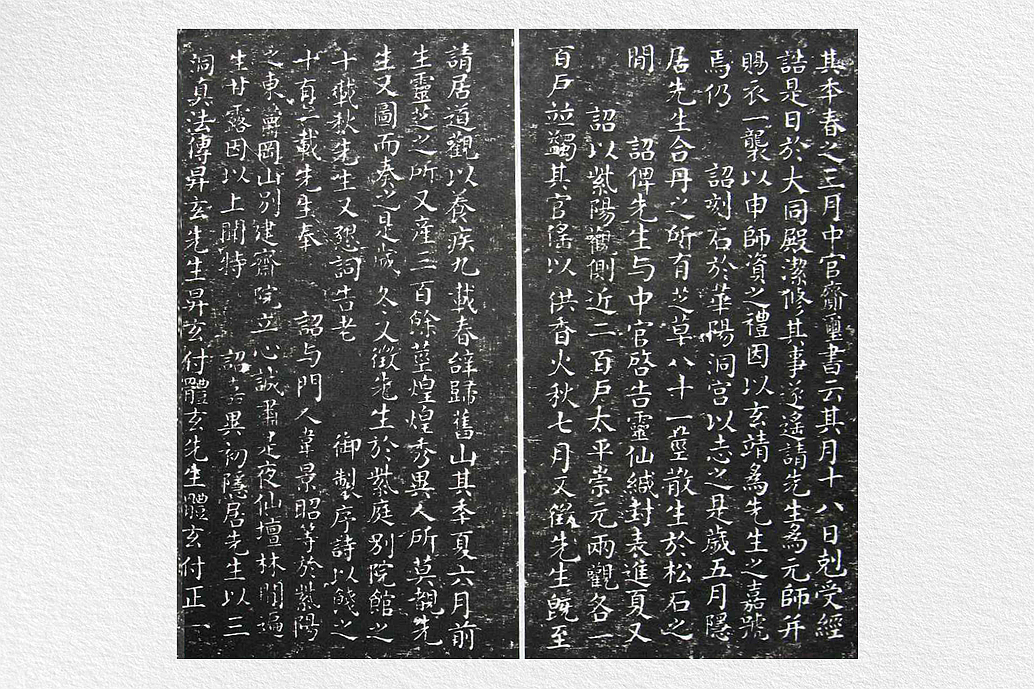 其年春之三月中官齎璽書云其月十八日剋受經
誥是日於大同殿潔修其事遂遙請先生為元師并
賜衣一襲以申師資之禮因以玄靖為先生之嘉號
焉仍 詔刻石於華陽洞宮以志之是歲五月隱
居先生合丹之所有芝草八十一莖散生於松石之
間 詔俾先生与中官啓告靈仙緘封表進夏又
詔以紫陽觀側近二百戶太平崇元兩觀各一
百戶並蠲其官傜以供香火秋七月又徵先生旣至
請居道觀以養疾九載春辭歸舊山其年夏六月前
生靈芝之所又產三百餘莖煌煌秀異人所莫覩先
生又圖而奏之是歲冬又徵先生於紫庭別院館之
十載秋先生又懇詞告老 御製序詩以餞之
十有一載先生奉 詔与門人韋景昭等於紫陽
之東鬱岡山別建齋院立心誠肅是夜仙壇林間遍
生甘露因以上聞特 詔嘉異初隱居先生以三
洞真法傳昇玄先生昇玄付體玄先生體玄付正一